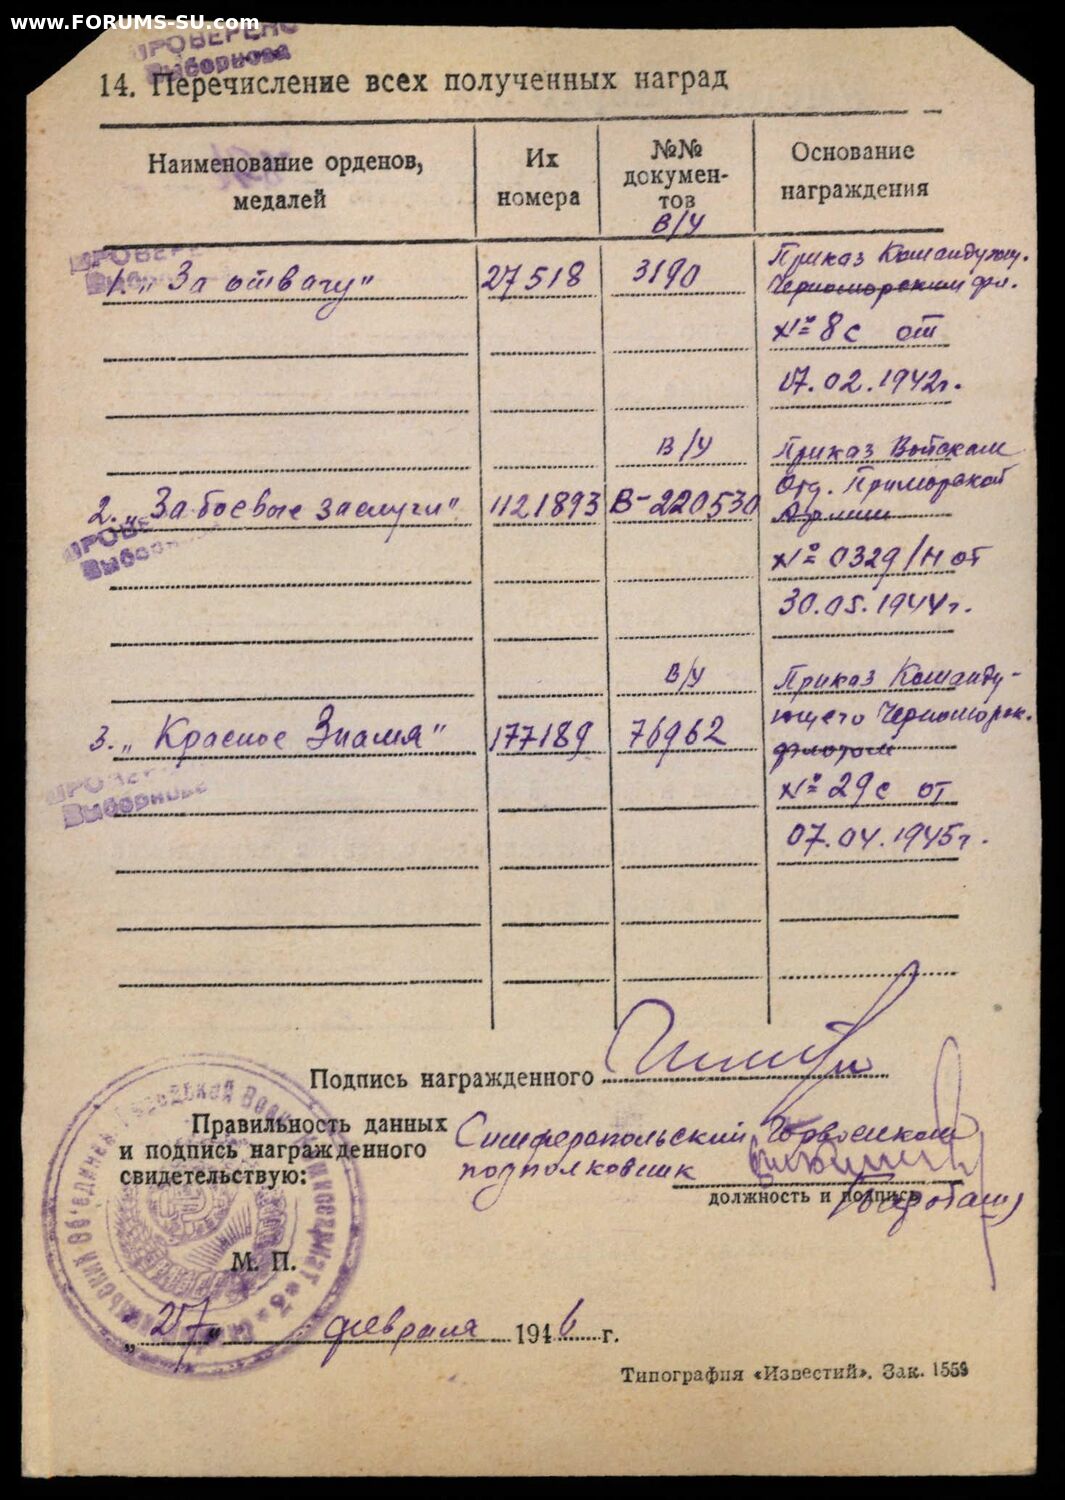 www.FORUMS-SU.com
ПРОВЕРЕНО
Выборнова
14. Перечисление всех полученных наград
Наименование орденов, медалей
Их номера
№№ докумен-
тов
В/У
Основание награждения
ПРОВЕРЕ
1. „За отвагу" 27518 3190 Приказ Командующ.
Черноморским фл.
№ 8с от
17.02.1942г.
В/У Приказ Войскам
2. „За боевые заслуги" 1121893 В-220530 Отд. Приморской
Армии
ПРОВЕ
Выборн
№ 0329/н от
30.05.1944г.
В/У Приказ Команду-
3. „Красное Знамя" 177189 76962 ющего Черноморск.
флотом
Выборнова
№ 29с от
07.04.1945г.
Подпись награжденного
Правильность данных
и подпись награжденного
свидетельствую:
Симферопольский Горвоенком
подполковник
должность и подпись
М. П.
„27" февраля 1946 г.
Типография «Известий». Зак. 1559